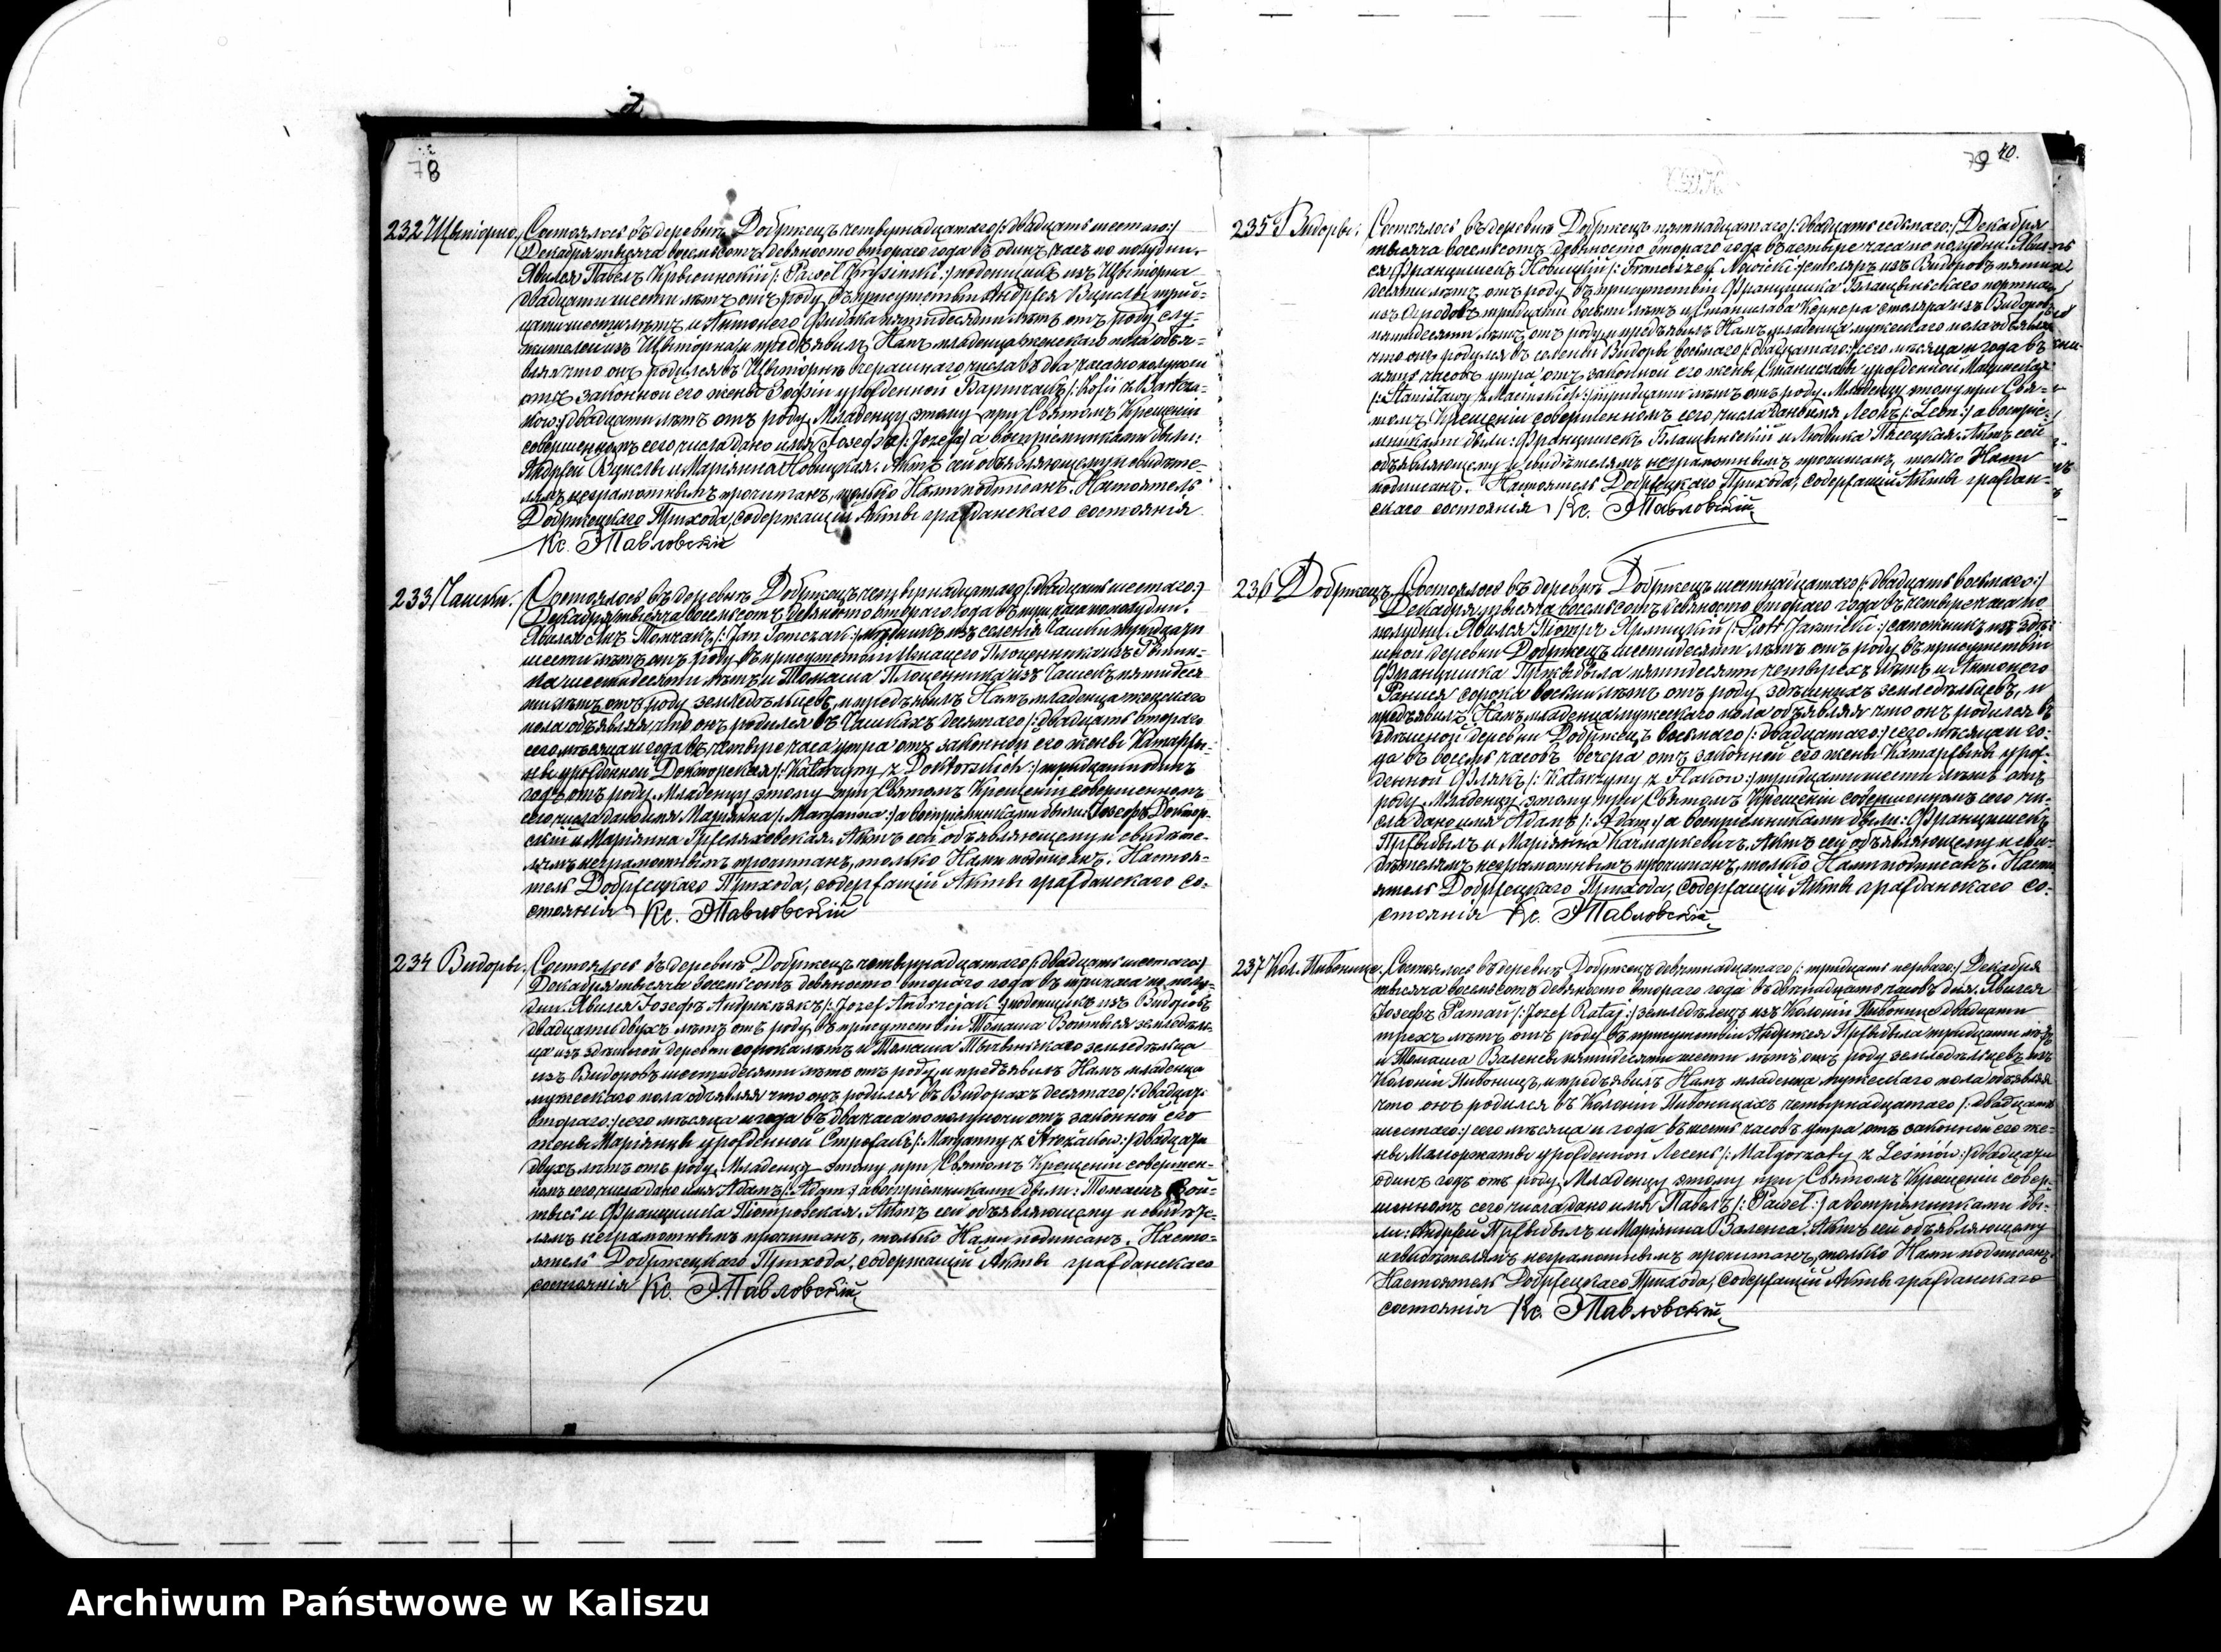 78
232 Цвѣторно. Состоялось въ деревнѣ Добржецъ четвернадцатаго /: двадцать шестаго:/
Декабря тысяча восемьсотъ девяносто втораго года въ одинъ часъ по полудни.
Явился Павелъ /: Paweł Krysinski:/ поденщикъ изъ
двадцати шести лѣтъ отъ роду въ присутствіи Андржея трид-
цати шести лѣтъ и Антонего пятидесяти лѣтъ отъ роду слу-
жителей изъ и предъявилъ Намъ младенца женскаго пола объя-
вляя что онъ родился въ вчерашняго числа въ два часа по полуночи
отъ законной его жены Зофіи урожденной Бартчакъ /: Zofii z Bartcza-
ków:/ двадцати лѣтъ отъ роду. Младенцу этому при Святомъ Крещеніи
совершенномъ сего числа дано имя /: Józefa:/ а воспріемниками были:
Андржей и Маріянна Новицкая. Актъ сей объявляющему и свидѣте-
лямъ неграмотнымъ прочитанъ, только Нами подписанъ. Настоятель
Добржецкаго Прихода, содержащій Акты гражданскаго состоянія
Кс. Э Павловскій
233 Чашки. Состоялось въ деревнѣ Добржецъ четвернадцатаго /: двадцать шестаго:/
Декабря тысяча восемьсотъ девяносто втораго года въ три часа по полудни.
Явился Янъ Томчакъ /: Jan Tomczak:/ изъ селенія Чашки тридцати
шести лѣтъ отъ роду въ присутствіи Игнацего Площенника изъ
шестидесяти лѣтъ и Томаша Площенника изъ Чашекъ пятидеся-
ти лѣтъ отъ роду земледѣльцевъ, и предъявилъ Намъ младенца женскаго
пола объявляя что онъ родился въ Чашкахъ десятаго /: двадцать втораго
сего мѣсяца и года въ четыре часа утра отъ законной его жены Катаржи-
ны урожденной Докторская /: Katarzyny z Doktorskich:/ тридцати одинъ
годъ отъ роду. Младенцу этому при Святомъ Крещеніи совершенномъ
сего числа дано имя Маріянна /: Maryanna:/ а воспріемниками были: Іосефъ Доктор-
скій и Маріянна Гржеляховская. Актъ сей объявляющему и свидѣте-
лямъ неграмотнымъ прочитанъ, только Нами подписанъ. Настоя-
тель Добржецкаго Прихода, содержащій Акты гражданскаго со-
стоянія Кс. Э Павловскій
234 Видоры. Состоялось въ деревнѣ Добржецъ четвернадцатаго /: двадцать шестаго:/
Декабря тысяча восемьсотъ девяносто втораго года въ три часа по полу-
дни. Явился Іозефъ Андржеякъ /: Józef Andrzejak:/ поденщикъ изъ Видоровъ
двадцати двухъ лѣтъ отъ роду, въ присутствіи Томаша Войтыся земледѣль-
ца изъ здѣшней деревни сорока лѣтъ и Томаша земледѣльца
изъ Видоровъ шестидесяти лѣтъ отъ роду, и предъявилъ Намъ младенца
мужескаго пола объявляя что онъ родился въ Видорахъ десятаго /: двадцать
втораго:/ сего мѣсяца и года въ два часа по полуночи отъ законной его
жены Маріянны урожденной Строжакъ /: Maryanny z Strożaków:/ двадцати
двухъ лѣтъ отъ роду. Младенцу этому при Святомъ Крещеніи совершен-
номъ сего числа дано имя Адамъ /: Adam:/ а воспріемниками были: Томашъ Вой-
тысь и Францишка Піотровская. Актъ сей объявляющему и свидѣте-
лямъ неграмотнымъ прочитанъ, только Нами подписанъ. Насто-
ятель Добржецкаго Прихода, содержащій Акты гражданскаго
состоянія Кс. Э. Павловскій
79 40.
235 Видоры. Состоялось въ деревнѣ Добржецъ пятнадцатаго /: двадцать седьмаго:/ Декабря
тысяча восемьсотъ девяносто втораго года въ четыре часа по полудни. Явил-
ся Францишекъ Новицкій /: Franciszek Nowicki:/ столяръ изъ Видоровъ пяти-
десяти лѣтъ отъ роду въ присутствіи Францишка
изъ тридцати восьми лѣтъ и Станислава Кернера столяра изъ Видоровъ
пятидесяти лѣтъ отъ роду, и предъявилъ Намъ младенца мужескаго пола объявляя
что онъ родился въ селеніи Видоры восьмаго /: двадцатаго:/ сего мѣсяца и года въ
пять часовъ утра отъ законной его жены Станиславы урожденной
/: Stanisławy z :/ тридцати лѣтъ отъ роду. Младенцу этому при Свя-
томъ Крещеніи совершенномъ сего числа дано имя Леонъ /: Leon:/ а воспріе-
мниками были: Францишекъ и Людвика Пясецкая. Актъ сей
объявляющему и свидѣтелямъ неграмотнымъ прочитанъ, только Нами
подписанъ. Настоятель Добржецкаго Прихода, содержащій Акты граждан-
скаго состоянія Кс. Э Павловскій
236 Добржецъ. Состоялось въ деревнѣ Добржецъ шестнадцатаго /: двадцать восьмаго:/
Декабря тысяча восемьсотъ девяносто втораго года въ четыре часа по
полудни. Явился Піотръ Ярницкій /: Piotr Jarnicki:/ сапожникъ изъ здѣ-
шней деревни Добржецъ шестидесяти лѣтъ отъ роду въ присутствіи
Францишка Пржибыла пятидесяти четырехъ лѣтъ и Антонего
сорока восьми лѣтъ отъ роду, здѣшнихъ земледѣльцевъ, и
предъявилъ Намъ младенца мужескаго пола объявляя что онъ родился въ
здѣшней деревни Добржецъ восьмаго /: двадцатаго:/ сего мѣсяца и го-
да въ восемь часовъ вечера отъ законной его жены Катаржины урож-
денной Флякъ /: Katarzyny z Flaków:/ тридцати шести лѣтъ отъ
роду. Младенцу этому при Святомъ Крещеніи совершенномъ сего чи-
сла дано имя Адамъ /: Adam:/ а воспріемниками были: Францишекъ
Пржибылъ и Маріянна Качмаркевичъ. Актъ сей объявляющему и сви-
дѣтелямъ неграмотнымъ прочитанъ, только Нами подписанъ. Насто-
ятель Добржецкаго Прихода, содержащій Акты гражданскаго со-
стоянія Кс. Э Павловскій
237 Кол. Пивонице. Состоялось въ деревнѣ Добржецъ девятнадцатаго /: тридцать перваго:/ Декабря
тысяча восемьсотъ девяносто втораго года въ двѣнадцать часовъ дня. Явился
Іозефъ Ратай /: Józef Rataj:/ земледѣлецъ изъ Колоніи Пивонице двадцати
трехъ лѣтъ отъ роду въ присутствіи Андржея Пржибыла тридцати лѣтъ
и Томаша Валенсы пятидесяти шести лѣтъ отъ роду земледѣльцевъ изъ
Колоніи Пивоницъ, и предъявилъ Намъ младенца мужескаго пола объявляя
что онъ родился въ Колоніи Пивоницахъ четырнадцатаго /: двадцать
шестаго:/ сего мѣсяца и года въ шесть часовъ утра отъ законной его же-
ны Малгоржаты урожденной Лесень /: Małgorzaty z Leśniów:/ двадцати
одинъ годъ отъ роду. Младенцу этому при Святомъ Крещеніи совер-
шенномъ сего числа дано имя Павелъ /: Paweł:/ а воспріемниками бы-
ли: Андржей Пржибылъ и Маріянна Валенса. Актъ сей объявляющему
и свидѣтелямъ неграмотнымъ прочитанъ, только Нами подписанъ.
Настоятель Добржецкаго Прихода, Содержащій Акты гражданскаго
состоянія Кс. Э Павловскій
Archiwum Państwowe w Kaliszu